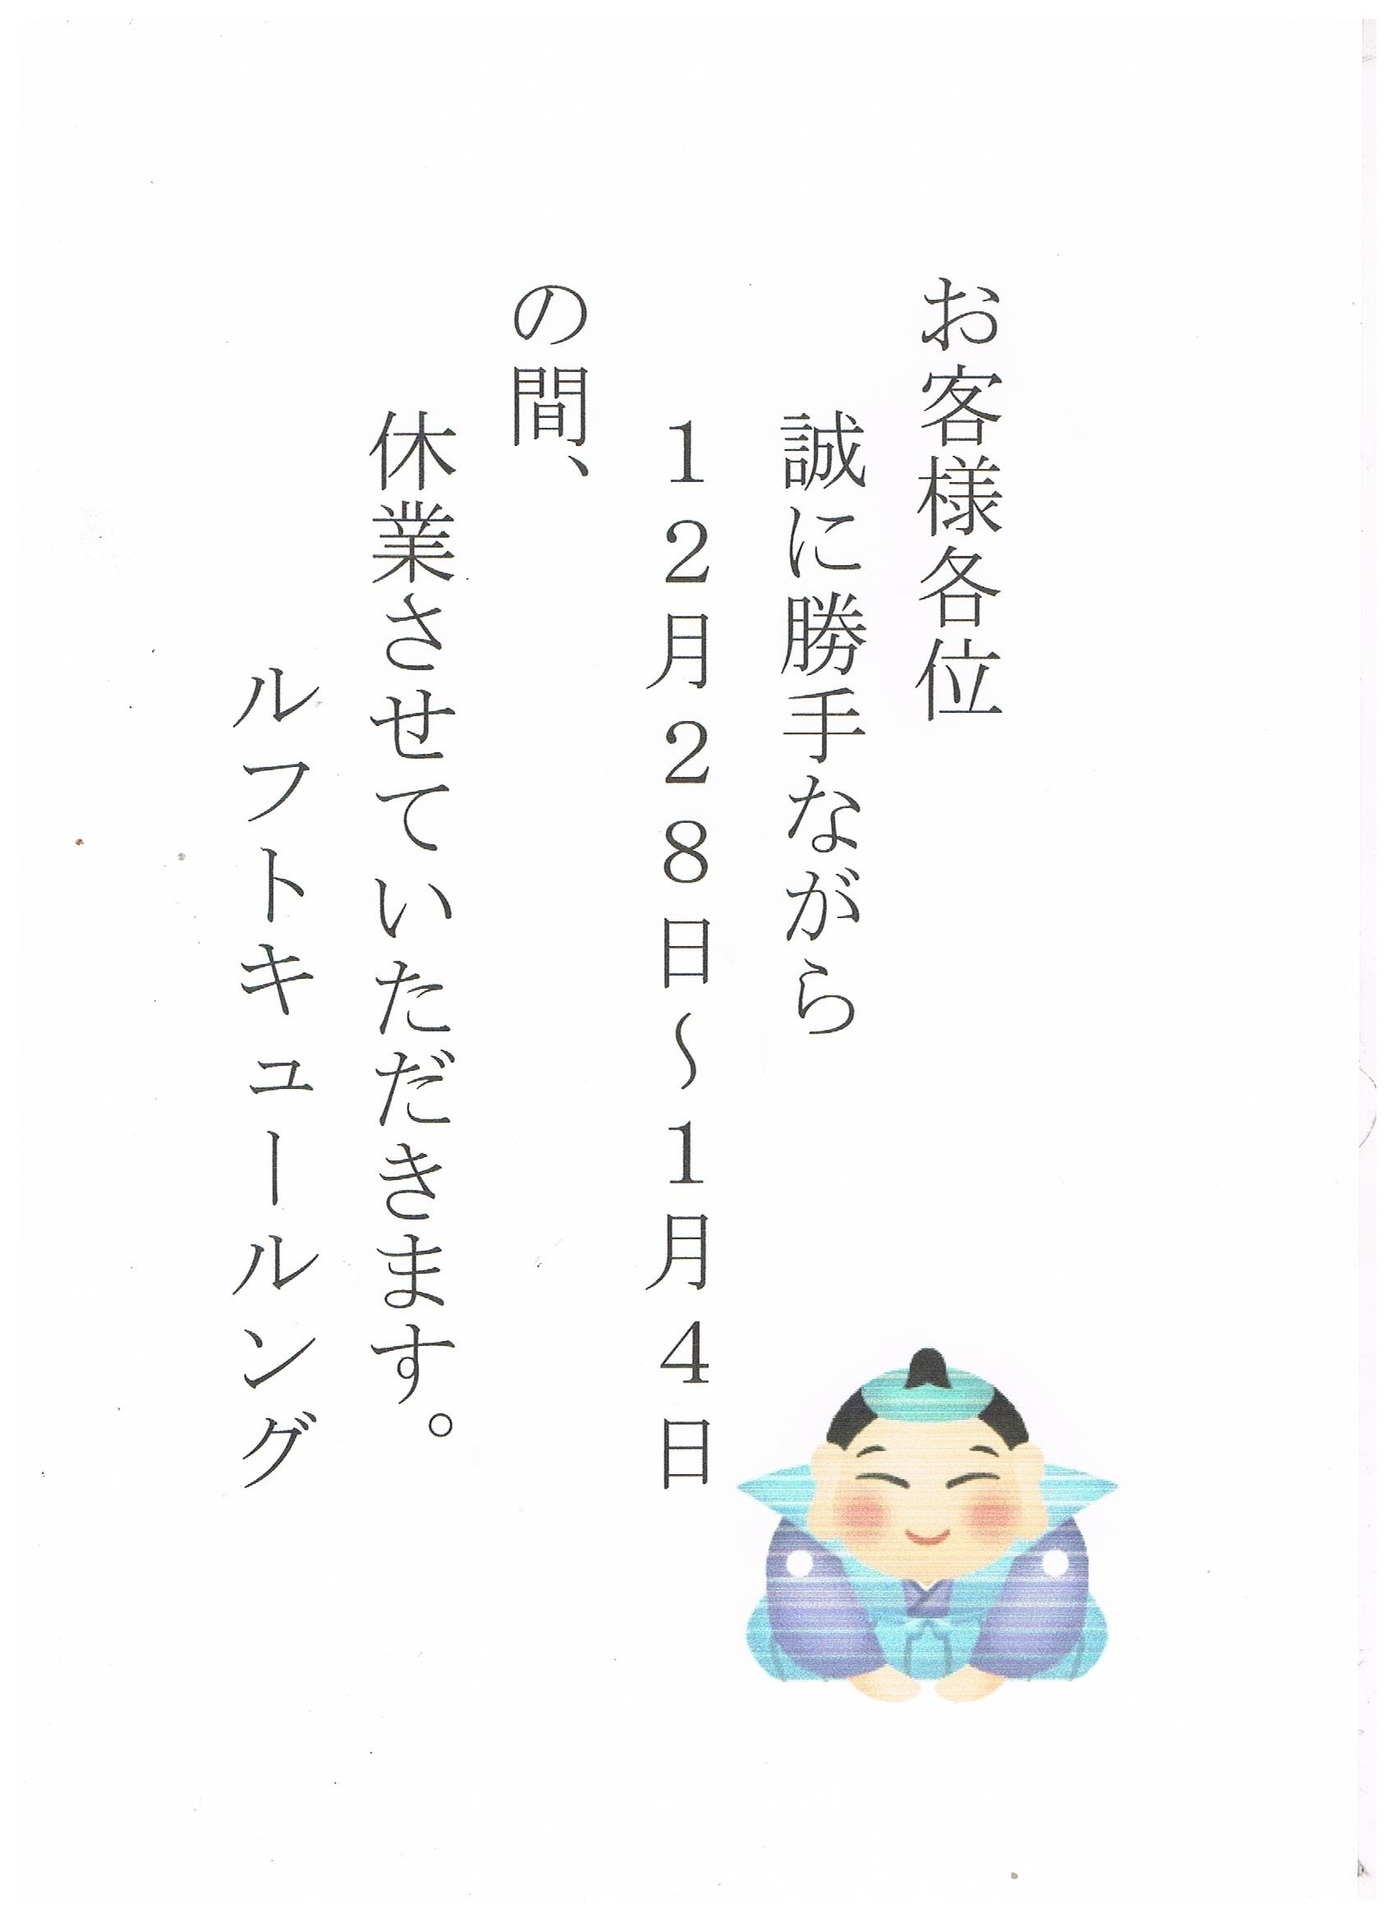 お客様各位
誠に勝手ながら
１２月２８日～１月４日
の間、
休業させていただきます。
ルフトキュールング